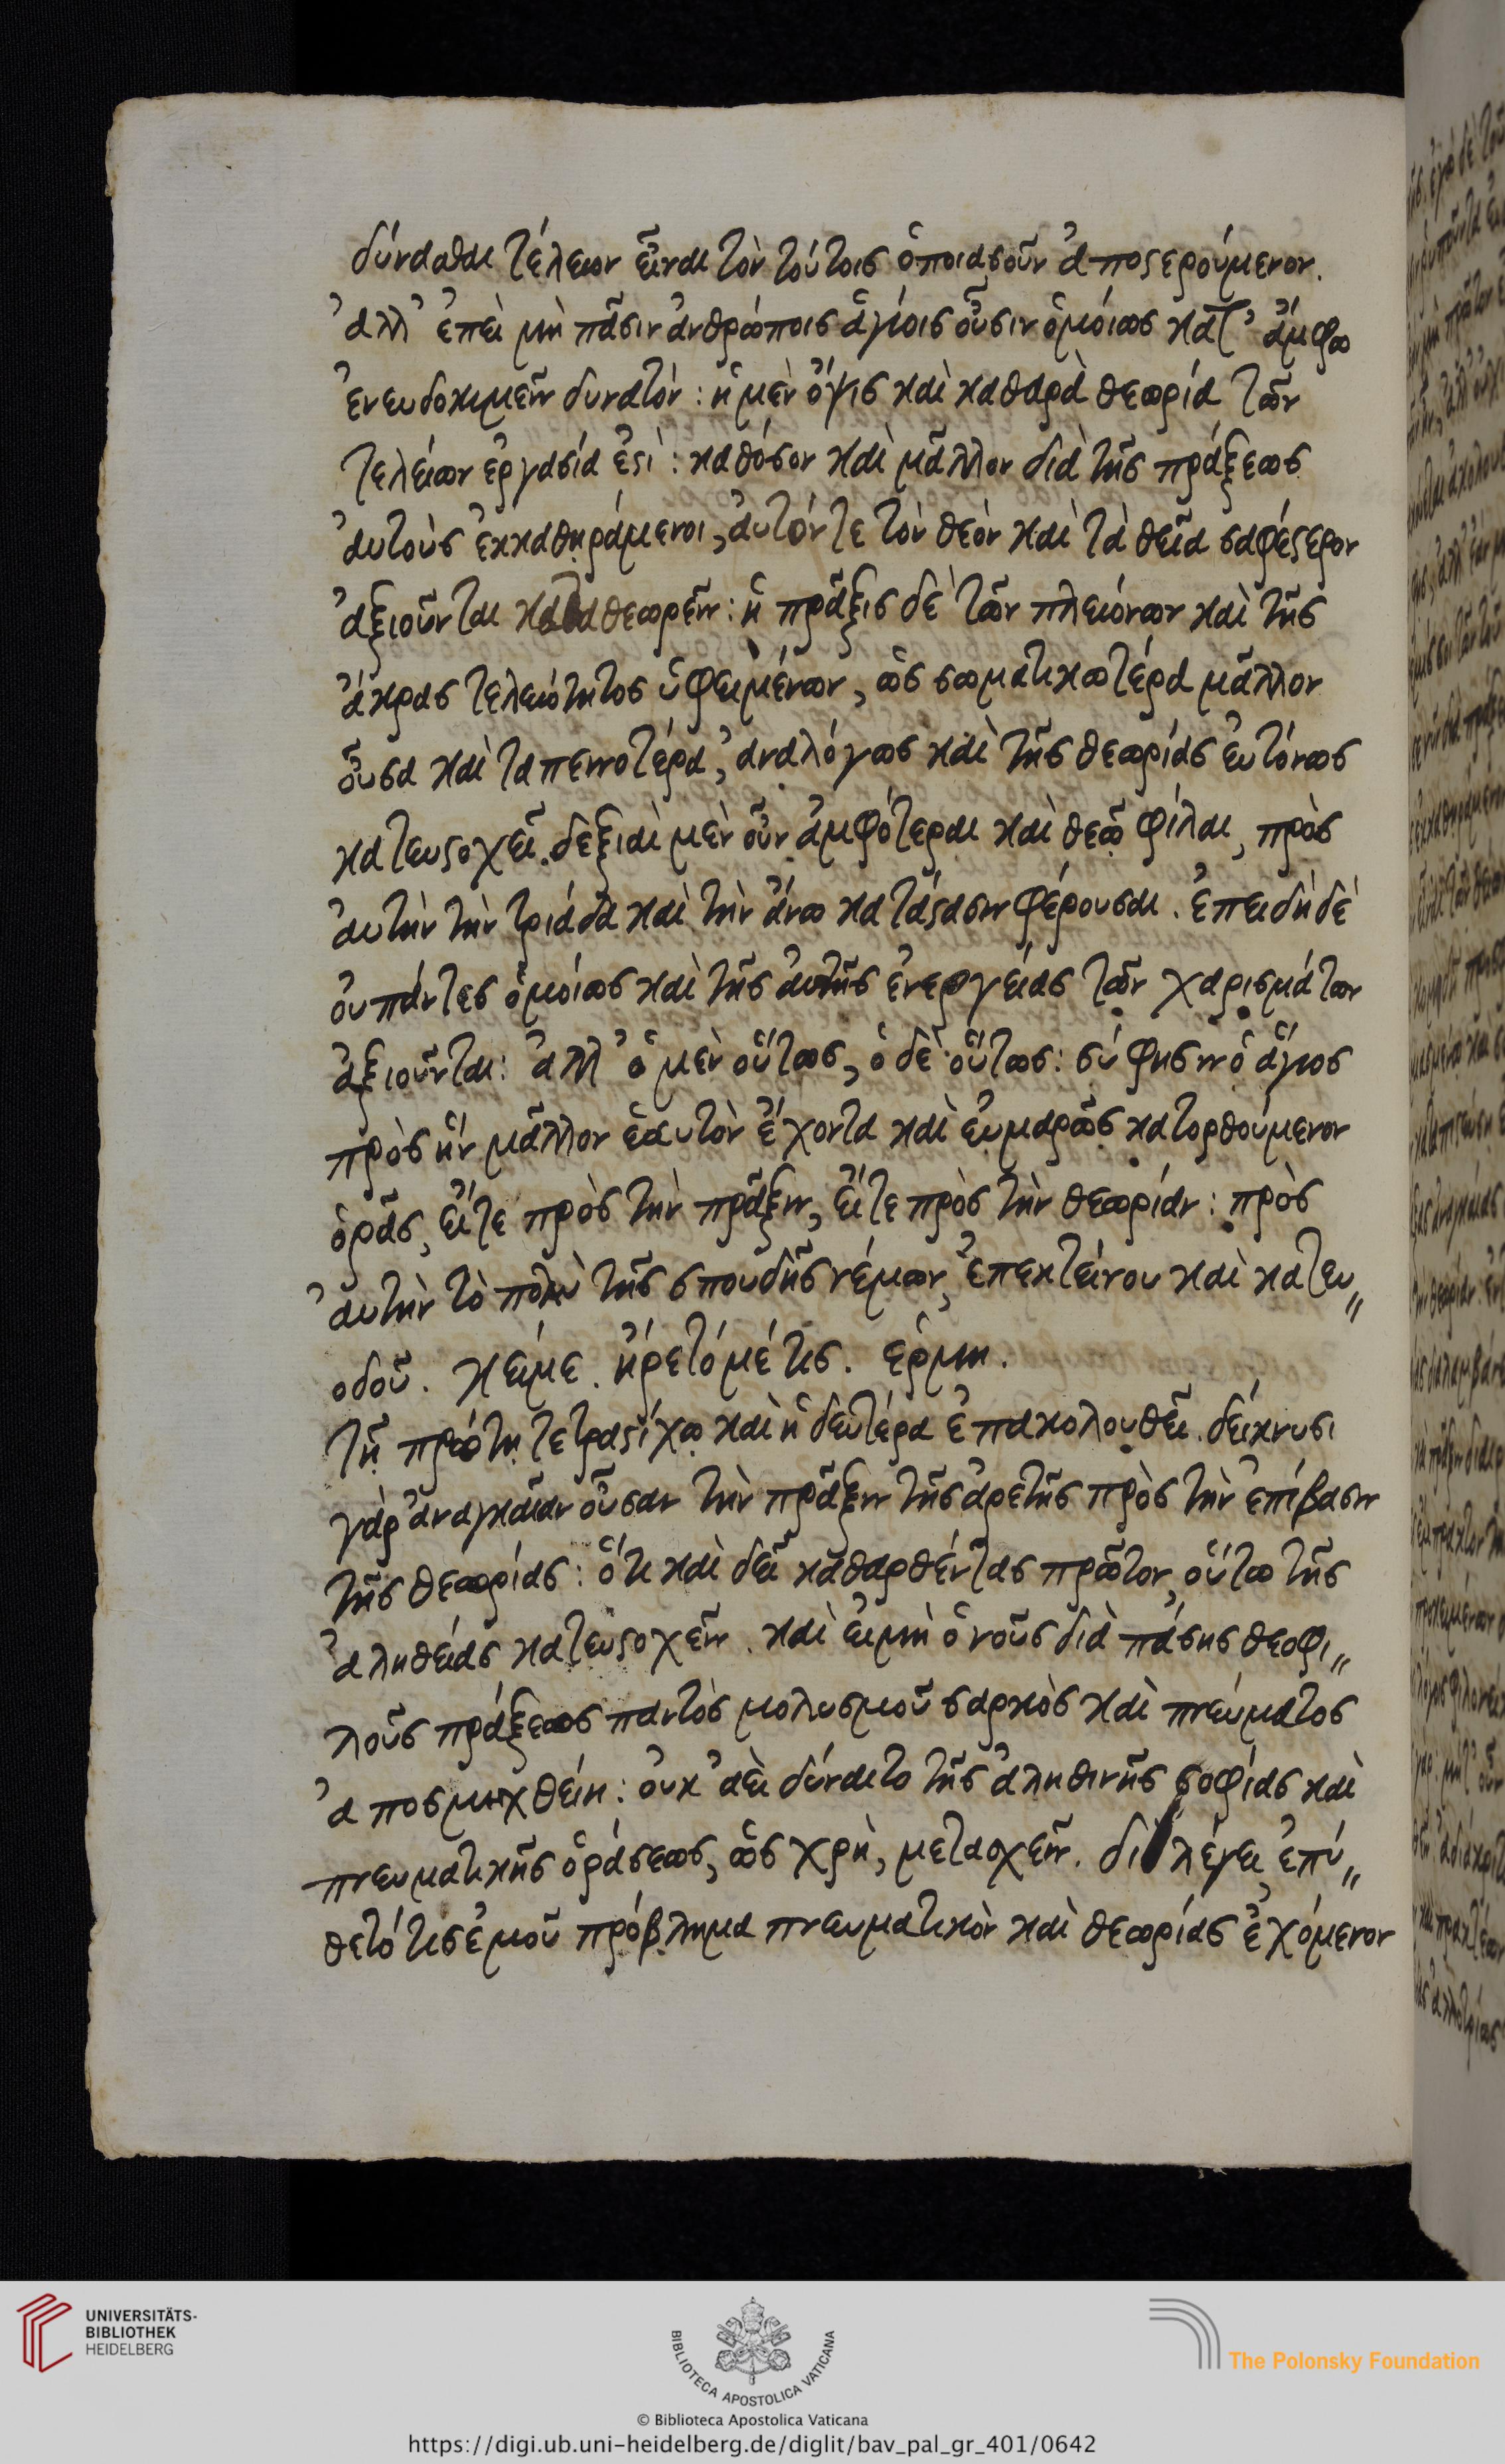 δύνασθαι τέλειον εἶναι τὸν τούτοις ὁποιασοῦν ἀποστερούμενον.
ἀλλ' ἐπεὶ μὴ πᾶσιν ἀνθρώποις ἁγίοις οὖσιν ὁμοίως κατ' ἄμφω
ἐνευδοκιμεῖν δυνατόν: ἡ μὲν ὄψις καὶ καθαρὰ θεωρία τῶν
τελείων ἐργασία ἐστὶ: καθόσον καὶ μᾶλλον διὰ τῆς πράξεως
ἀυτοὺς ἐκκαθηράμενοι, ἀυτόν τε τὸν θεὸν καὶ τὰ θεῖα σαφέστερον
ἀξιοῦνται καταθεωρεῖν: ἡ πρᾶξις δὲ τῶν πλειόνων καὶ τῆς
ἄκρας τελειότητος ὑφειμένων, ὡς σωματικωτέρα μᾶλλον
οὖσα καὶ ταπεινοτέρα, ἀναλόγως καὶ τῆς θεωρίας ἐυτόνως
κατευστοχεῖ. δεξιαὶ μὲν οὖν ἀμφότεραι καὶ θεῷ φίλαι, πρὸς
ἀυτὴν τὴν τριάδα καὶ τὴν ἄνω κατάστασιν φέρουσαι. ἐπειδὴ δὲ
οὐ πάντες ὁμοίως καὶ τῆς ἀυτῆς ἐνεργείας τῶν χαρισμάτων
ἀξιοῦνται: ἀλλ' ὁ μὲν οὕτως, ὁ δὲ οὕτως: σύ φησιν ὁ ἅγιος
πρὸς ἣν μᾶλλον ἑαυτὸν ἔχοντα καὶ εὐμαρῶς κατορθούμενον
ὁρᾶς, εἴτε πρὸς τὴν πρᾶξιν, εἴτε πρὸς τὴν θεωρίαν: πρὸς
ἀυτὴν τὸ πολὺ τῆς σπουδῆς νέμων, ἐπεκτείνου καὶ κατευ„
οδοῦ. κείμε. ἤρετό μέ τις. ἑρμη.
τῇ πρώτῃ τετραστίχῳ καὶ ἡ δευτέρα ἐπακολουθεῖ. δείκνυσι
γὰρ ἀναγκαίαν οὖσαν τὴν πρᾶξιν τῆς ἀρετῆς πρὸς τὴν ἐπίβασιν
τῆς θεωρίας: ὅτι καὶ δεῖ καθαρθέντας πρῶτον, οὕτω τῆς
ἀληθείας κατευστοχεῖν. καὶ εἰμὴ ὁ νοῦς διὰ πάσης θεοφι„
λοῦς πράξεως παντὸς μολυσμοῦ σαρκὸς καὶ πνεύματος
ἀποσμηχθείη: οὐκ ἀεὶ δύναιτο τῆς ἀληθινῆς σοφίας καὶ
πνευματικῆς ὁράσεως, ὡς χρὴ, μετασχεῖν. διὸ λέγει, ἐπύ„
θετό τις ἐμοῦ πρόβλημα πνευματικὸν καὶ θεωρίας ἐχόμενον
UNIVERSITÄTS-
BIBLIOTHEK
HEIDELBERG
BIBLIOTECA APOSTOLICA VATICANA
The Polonsky Foundation
© Biblioteca Apostolica Vaticana
https://digi.ub.uni-heidelberg.de/diglit/bav_pal_gr_401/0642